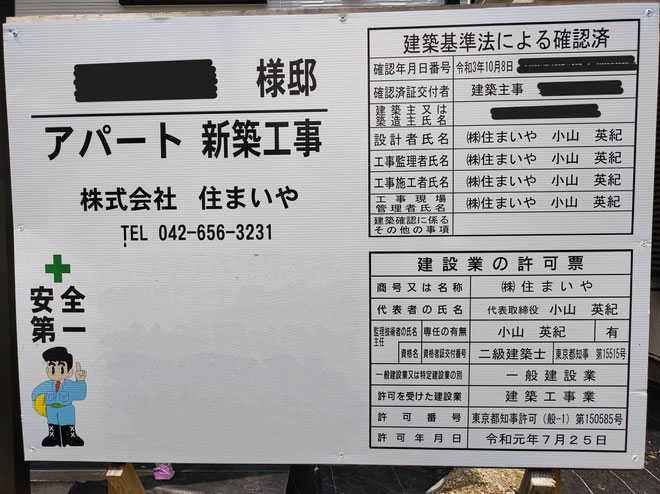 様邸
アパート 新築工事
株式会社 住まいや
TEL 042-656-3231
安全
第一
建築基準法による確認済
確認年月日番号 令和3年10月8日
確認済証交付者 建築主事
建築主又は
築造主氏名
設計者氏名 ㈱住まいや 小山 英紀
工事監理者氏名 ㈱住まいや 小山 英紀
工事施工者氏名 ㈱住まいや 小山 英紀
工事現場
管理者氏名 ㈱住まいや 小山 英紀
建築確認に係る
その他の事項
建設業の許可票
商号又は名称 ㈱住まいや
代表者の氏名 代表取締役 小山 英紀
監理技術者の氏名
主任 専任の有無 小山 英紀 有
資格名 資格者証交付番号 二級建築士 東京都知事 第15515号
一般建設業又は特定建設業の別 一般建設業
許可を受けた建設業 建築工事業
許可番号 東京都知事許可(般-1)第150585号
許可年月日 令和元年7月25日